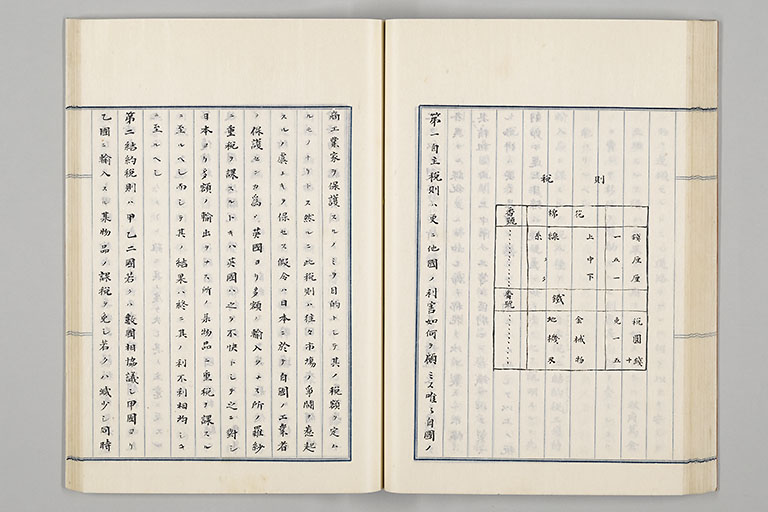 税則
番號 綿 花
糸 線 上
〃 中
〃 下
錢 厘 厘
一 五 一
番號 鐵
地金
機械
刄物
税 圓 錢
免 一 十
一 五 五
第一自主税則ハ更ニ他國ノ利害如何ヲ顧ミス唯自國ノ
商工業家ヲ保護スルノミヲ目的トシテ其ノ税額ヲ定ム
ルモノナリトス然ルニ此税則ハ往々市場ノ爭鬪ヲ惹起
スルノ虞ナキヲ保セス假令ハ日本ニ於テ自國ノ工業者
ヲ保護センカ爲ノ英國ヨリ多額ノ輸入ヲナス所ノ羅紗
ニ重税ヲ課スルトキハ英國ハ之ヲ不快トシテ之ニ對シ
日本ヨリ多額ノ輸出ヲナス所ノ某物品ニ重税ヲ課スル
ニ至ルヘシ而シテ其ノ結果ハ終ニ其ノ利不利相均シキ
ニ至ルヘシ
第二結約税則ハ甲乙二國若クハ數國相協議シ甲國ヨリ
乙國ニ輸入スル某物品ノ課税ヲ免シ若クハ減少シ同時